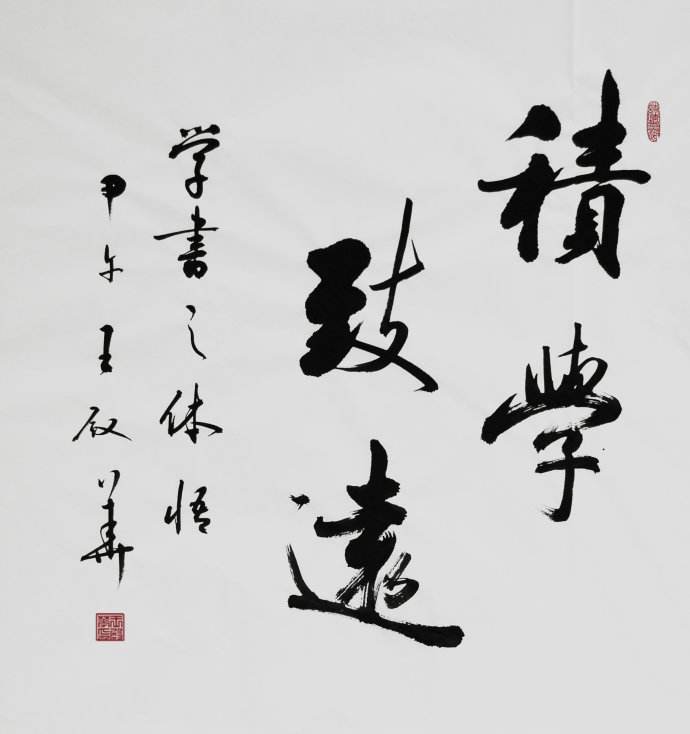 積學
致遠
学書之体悟
甲午王華